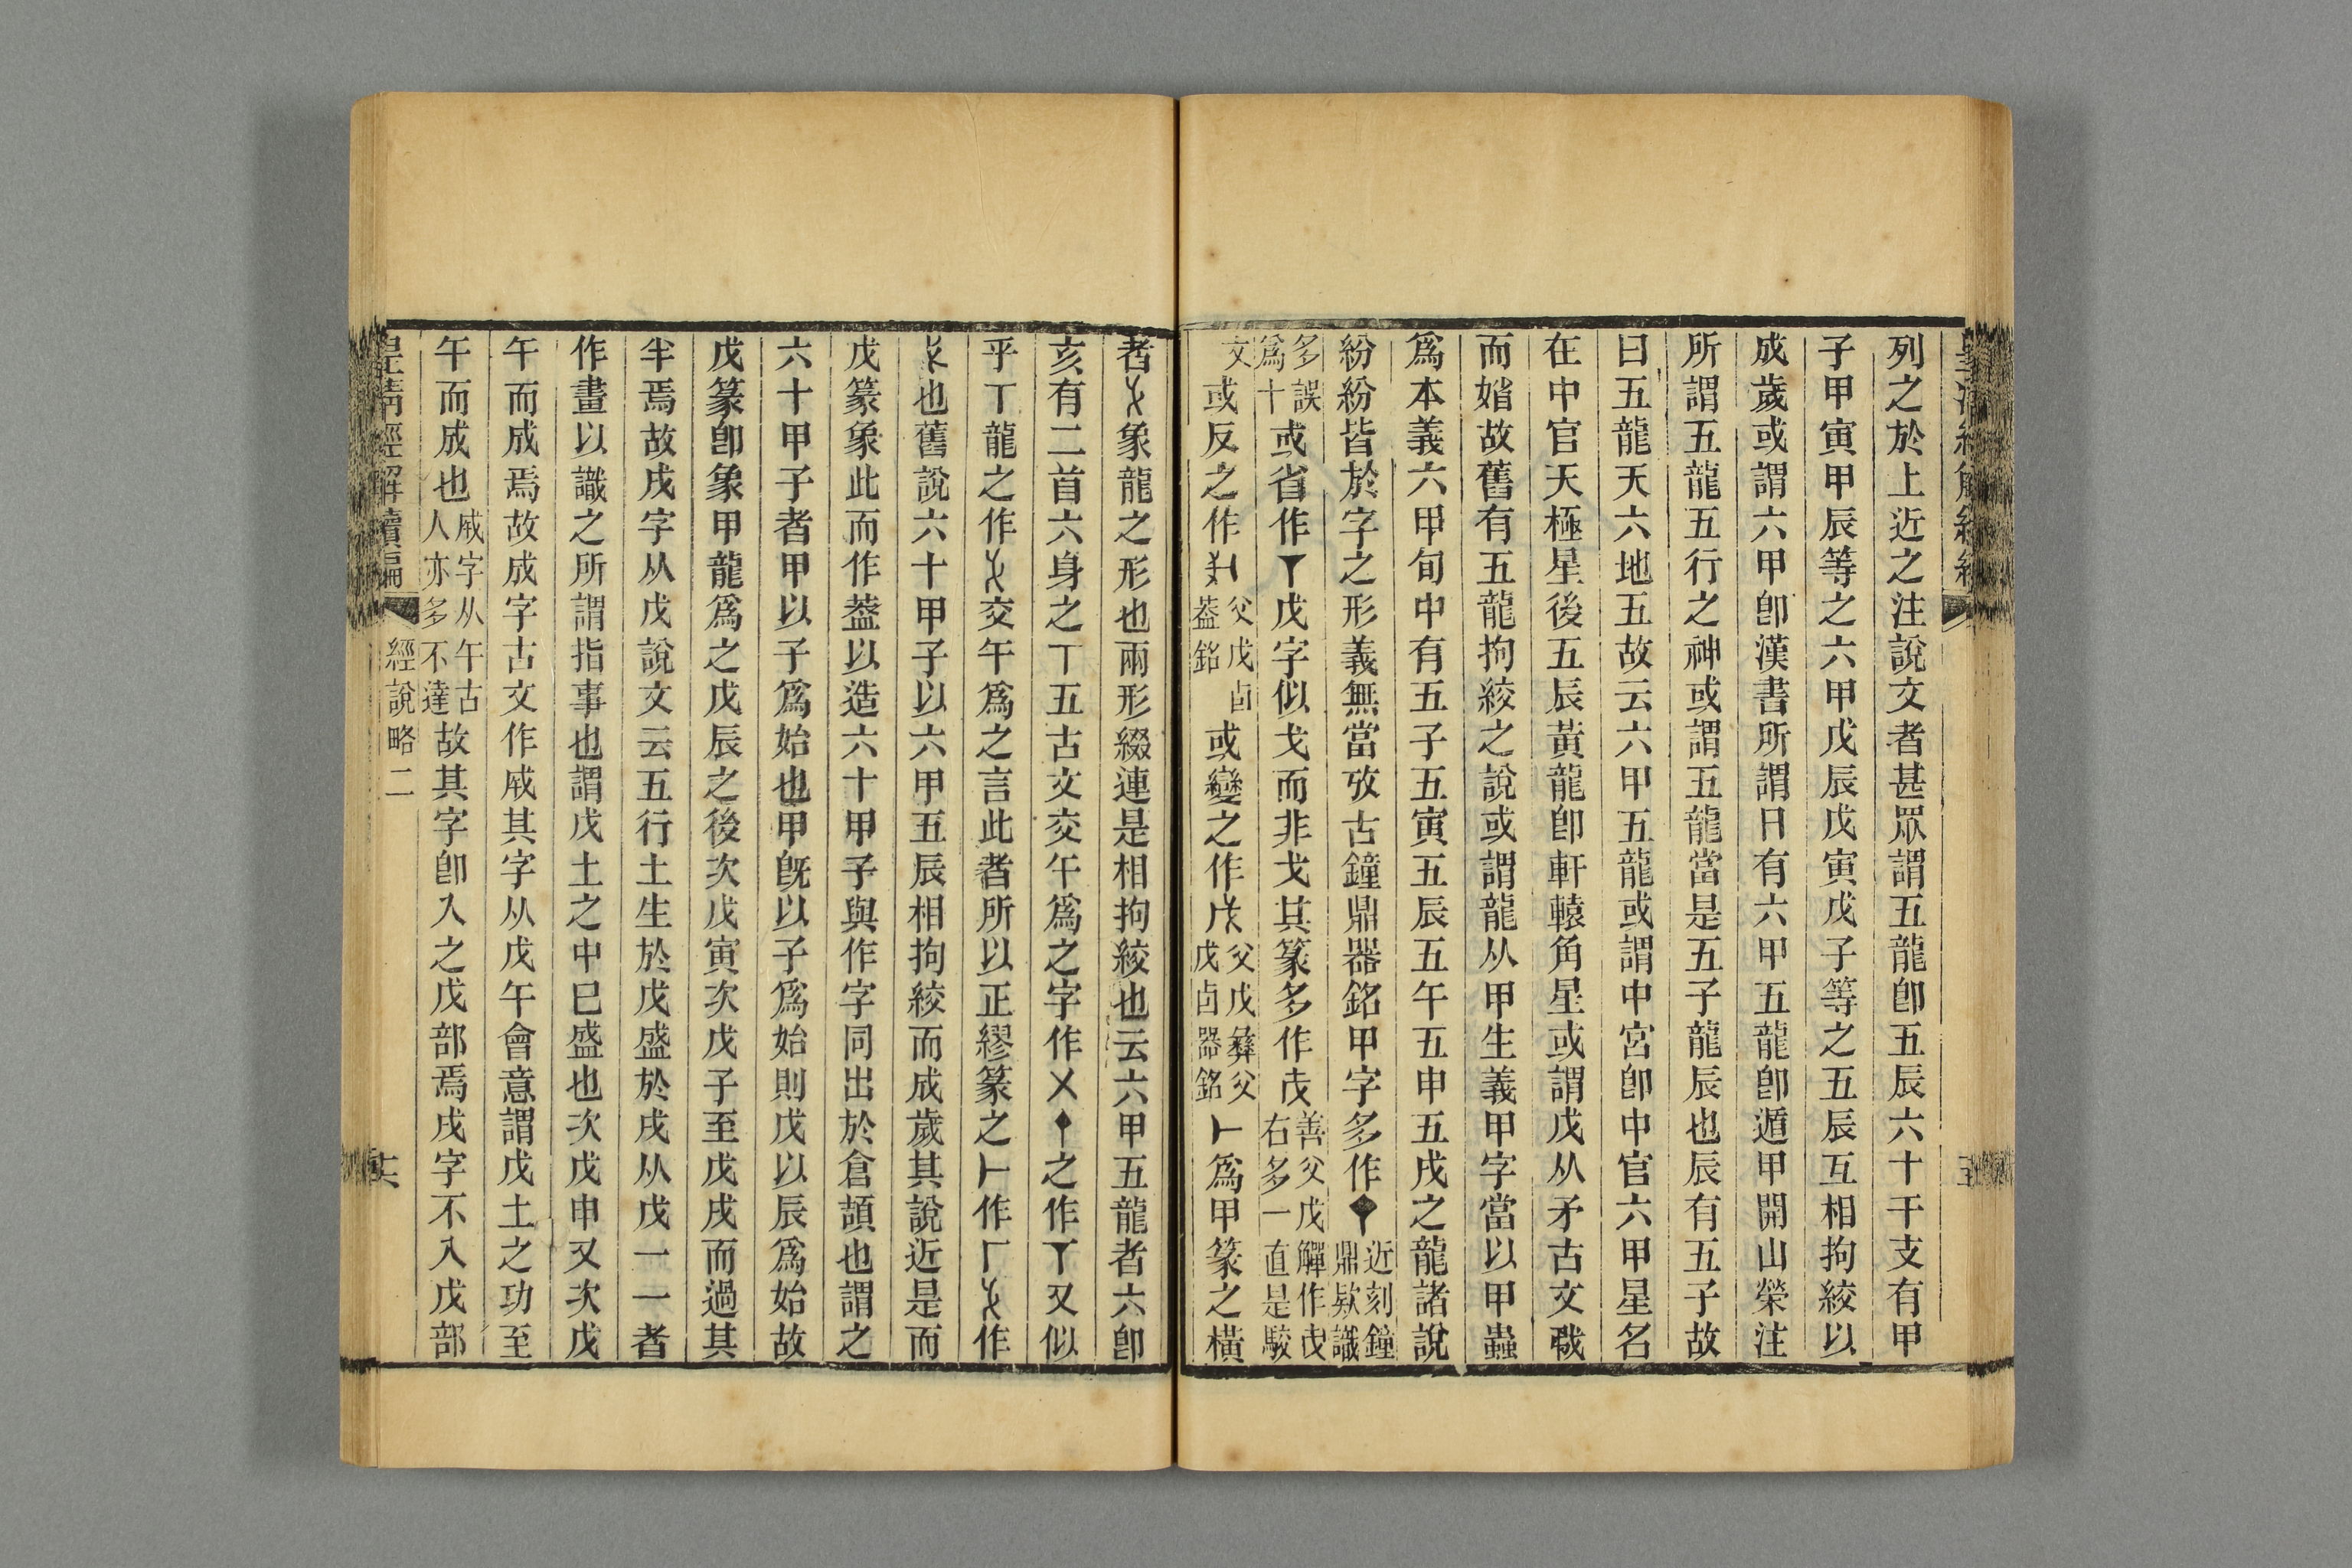 列之於上近之注說文者甚眾謂五龍卽五辰六十干支有甲
子甲寅甲辰等之六甲戊辰戊寅戊子等之五辰互相拘絞以
成歲或謂六甲卽漢書所謂日有六甲五龍卽遁甲開山榮注
所謂五龍五行之神或謂五龍當是五子龍辰也辰有五子故
曰五龍天六地五故云六甲五龍或謂中宮卽中官六甲星名
在中官天極星後五辰黃龍卽軒轅角星或謂戊从矛古文戟
而媘故舊有五龍拘絞之說或謂龍从甲生義甲字當以甲蟲
爲本義六甲旬中有五子五寅五辰五午五申五戌之龍諸說
紛紛皆於字之形義無當攷古鐘鼎器銘甲字多作 近刻鐘鼎欵識
多誤爲十或省作 戊字似戈而非戈其篆多作戊善父戊觶作戊右多一直是駁
文或反之作 父戊卣葢銘或變之作 父戊彝父戊卣器銘 爲甲篆之橫
者 象龍之形也兩形綴連是相拘絞也云六甲五龍者六卽
亥有二首六身之丅五古文交午爲之字作㐅 之作 又似
乎丅龍之作 交午爲之言此者所以正繆篆之 作 作
 也舊說六十甲子以六甲五辰相拘絞而成歲其說近是而
戊篆象此而作葢以造六十甲子與作字同出於倉頡也謂之
六十甲子者甲以子爲始也甲旣以子爲始則戊以辰爲始故
戊篆卽象甲龍爲之戊辰之後次戊寅次戊子至戊戌而過其
半焉故戌字从戊說文云五行土生於戊盛於戌从戊一一者
作畫以識之所謂指事也謂戊土之中巳盛也次戊申又次戊
午而成焉故成字古文作戚其字从戊午會意謂戊土之功至
午而成也戚字从午古人亦多不達故其字卽入之戊部焉戌字不入戊部
皇淸經解續編 經說略二